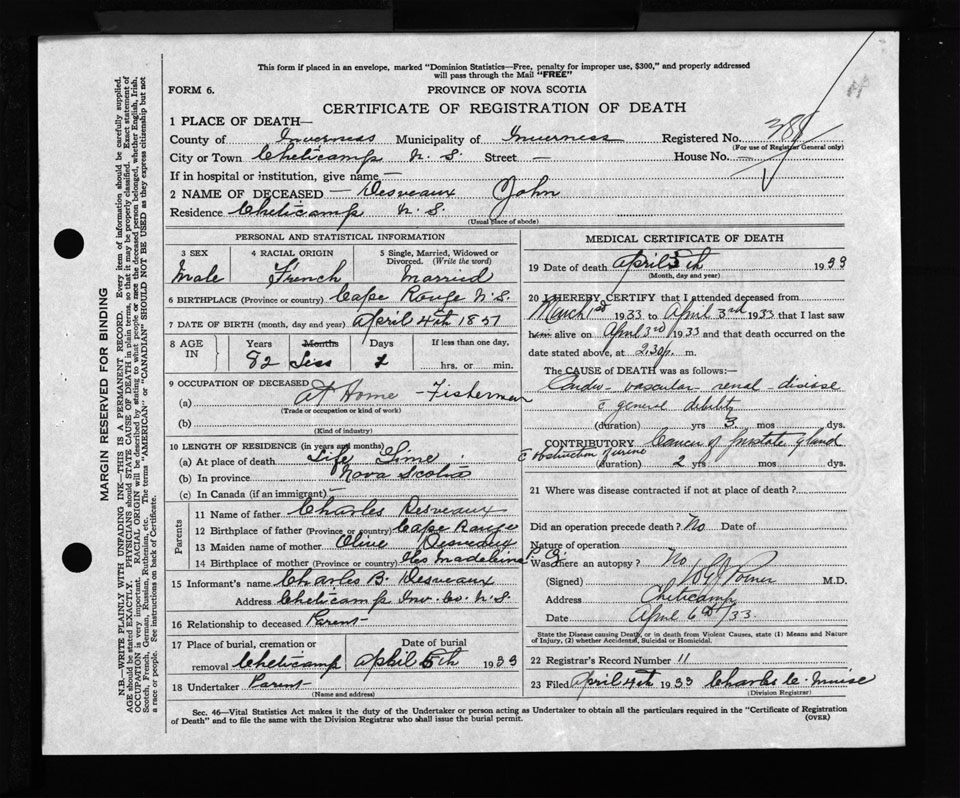 This form if placed in an envelope, marked "Dominion Statistics—Free, penalty for improper use, $300," and properly addressed
will pass through the Mail "FREE"
FORM 6.
PROVINCE OF NOVA SCOTIA
CERTIFICATE OF REGISTRATION OF DEATH
1 PLACE OF DEATH—
County of Inverness Municipality of Inverness Registered No.
(For use of Registrar General only)
City or Town Cheticamp N. S. Street — House No. —
If in hospital or institution, give name —
2 NAME OF DECEASED — Desveaux John
Residence Cheticamp N. S.
(Usual place of abode)
PERSONAL AND STATISTICAL INFORMATION
3 SEX 4 RACIAL ORIGIN 5 Single, Married, Widowed or
Divorced. (Write the word)
Male French Married
6 BIRTHPLACE (Province or country) Cape Rouge N.S.
7 DATE OF BIRTH (month, day and year) April 4th 1851
8 AGE IN Years Months Days If less than one day,
82 Less hrs. or min.
9 OCCUPATION OF DECEASED
(a) At Home - Fisherman
(Trade or occupation or kind of work)
(b)
(Kind of industry)
10 LENGTH OF RESIDENCE (in years and months)
(a) At place of death Life Time
(b) In province Nova Scotia
(c) In Canada (if an immigrant) —
Parents
11 Name of father Charles Desveaux
12 Birthplace of father (Province or country) Cape Rouge
13 Maiden name of mother Olive Desveaux
14 Birthplace of mother (Province or country) Iles Madeline P. Q.
15 Informant's name Charles B. Desveaux
Address Cheticamp Inv. Co. N.S.
16 Relationship to deceased Parent
17 Place of burial, cremation or removal Date of burial
Cheticamp April 5th 1933
18 Undertaker Parent
(Name and address)
MEDICAL CERTIFICATE OF DEATH
19 Date of death April th 1933
(Month, day and year)
20 I HEREBY CERTIFY that I attended deceased from
March 1st 1933 to April 3rd 1933 that I last saw
him alive on April 3rd 1933 and that death occurred on the
date stated above, at 2.30 p. m.
The CAUSE of DEATH was as follows:—
Cardio - vascular - renal - disease
c general debility
(duration) yrs 3 mos dys.
CONTRIBUTORY Cancer of prostate gland
c obstruction of urine
(duration) 2 yrs mos dys.
21 Where was disease contracted if not at place of death?
Did an operation precede death? No Date of
Nature of operation
Was there an autopsy? No
(Signed) M.D.
Address Cheticamp
Date April 6th/33.
State the Disease causing Death, or in death from Violent Causes, state (1) Means and Nature
of Injury, (2) whether Accidental, Suicidal or Homicidal.
22 Registrar's Record Number 11
23 Filed April 4th 1933 Charles C. Muise
(Division Registrar)
Sec. 46—Vital Statistics Act makes it the duty of the Undertaker or person acting as Undertaker to obtain all the particulars required in the "Certificate of Registration
of Death" and to file the same with the Division Registrar who shall issue the burial permit.
(OVER)
MARGIN RESERVED FOR BINDING
N.B.—WRITE PLAINLY WITH UNFADING INK—THIS IS A PERMANENT RECORD. Every item of information should be carefully supplied.
AGE should be stated EXACTLY. PHYSICIANS should STATE CAUSE OF DEATH in plain terms, so that it may be properly classified. Exact statement of
OCCUPATION is very important. RACIAL ORIGIN will be described by stating to what people or race the deceased person belonged, whether English, Irish,
Scotch, French, German, Russian, Ruthenian, etc. The terms "AMERICAN" or "CANADIAN" SHOULD NOT BE USED as they express citizenship but not
a race or people. See instructions on back of Certificate.